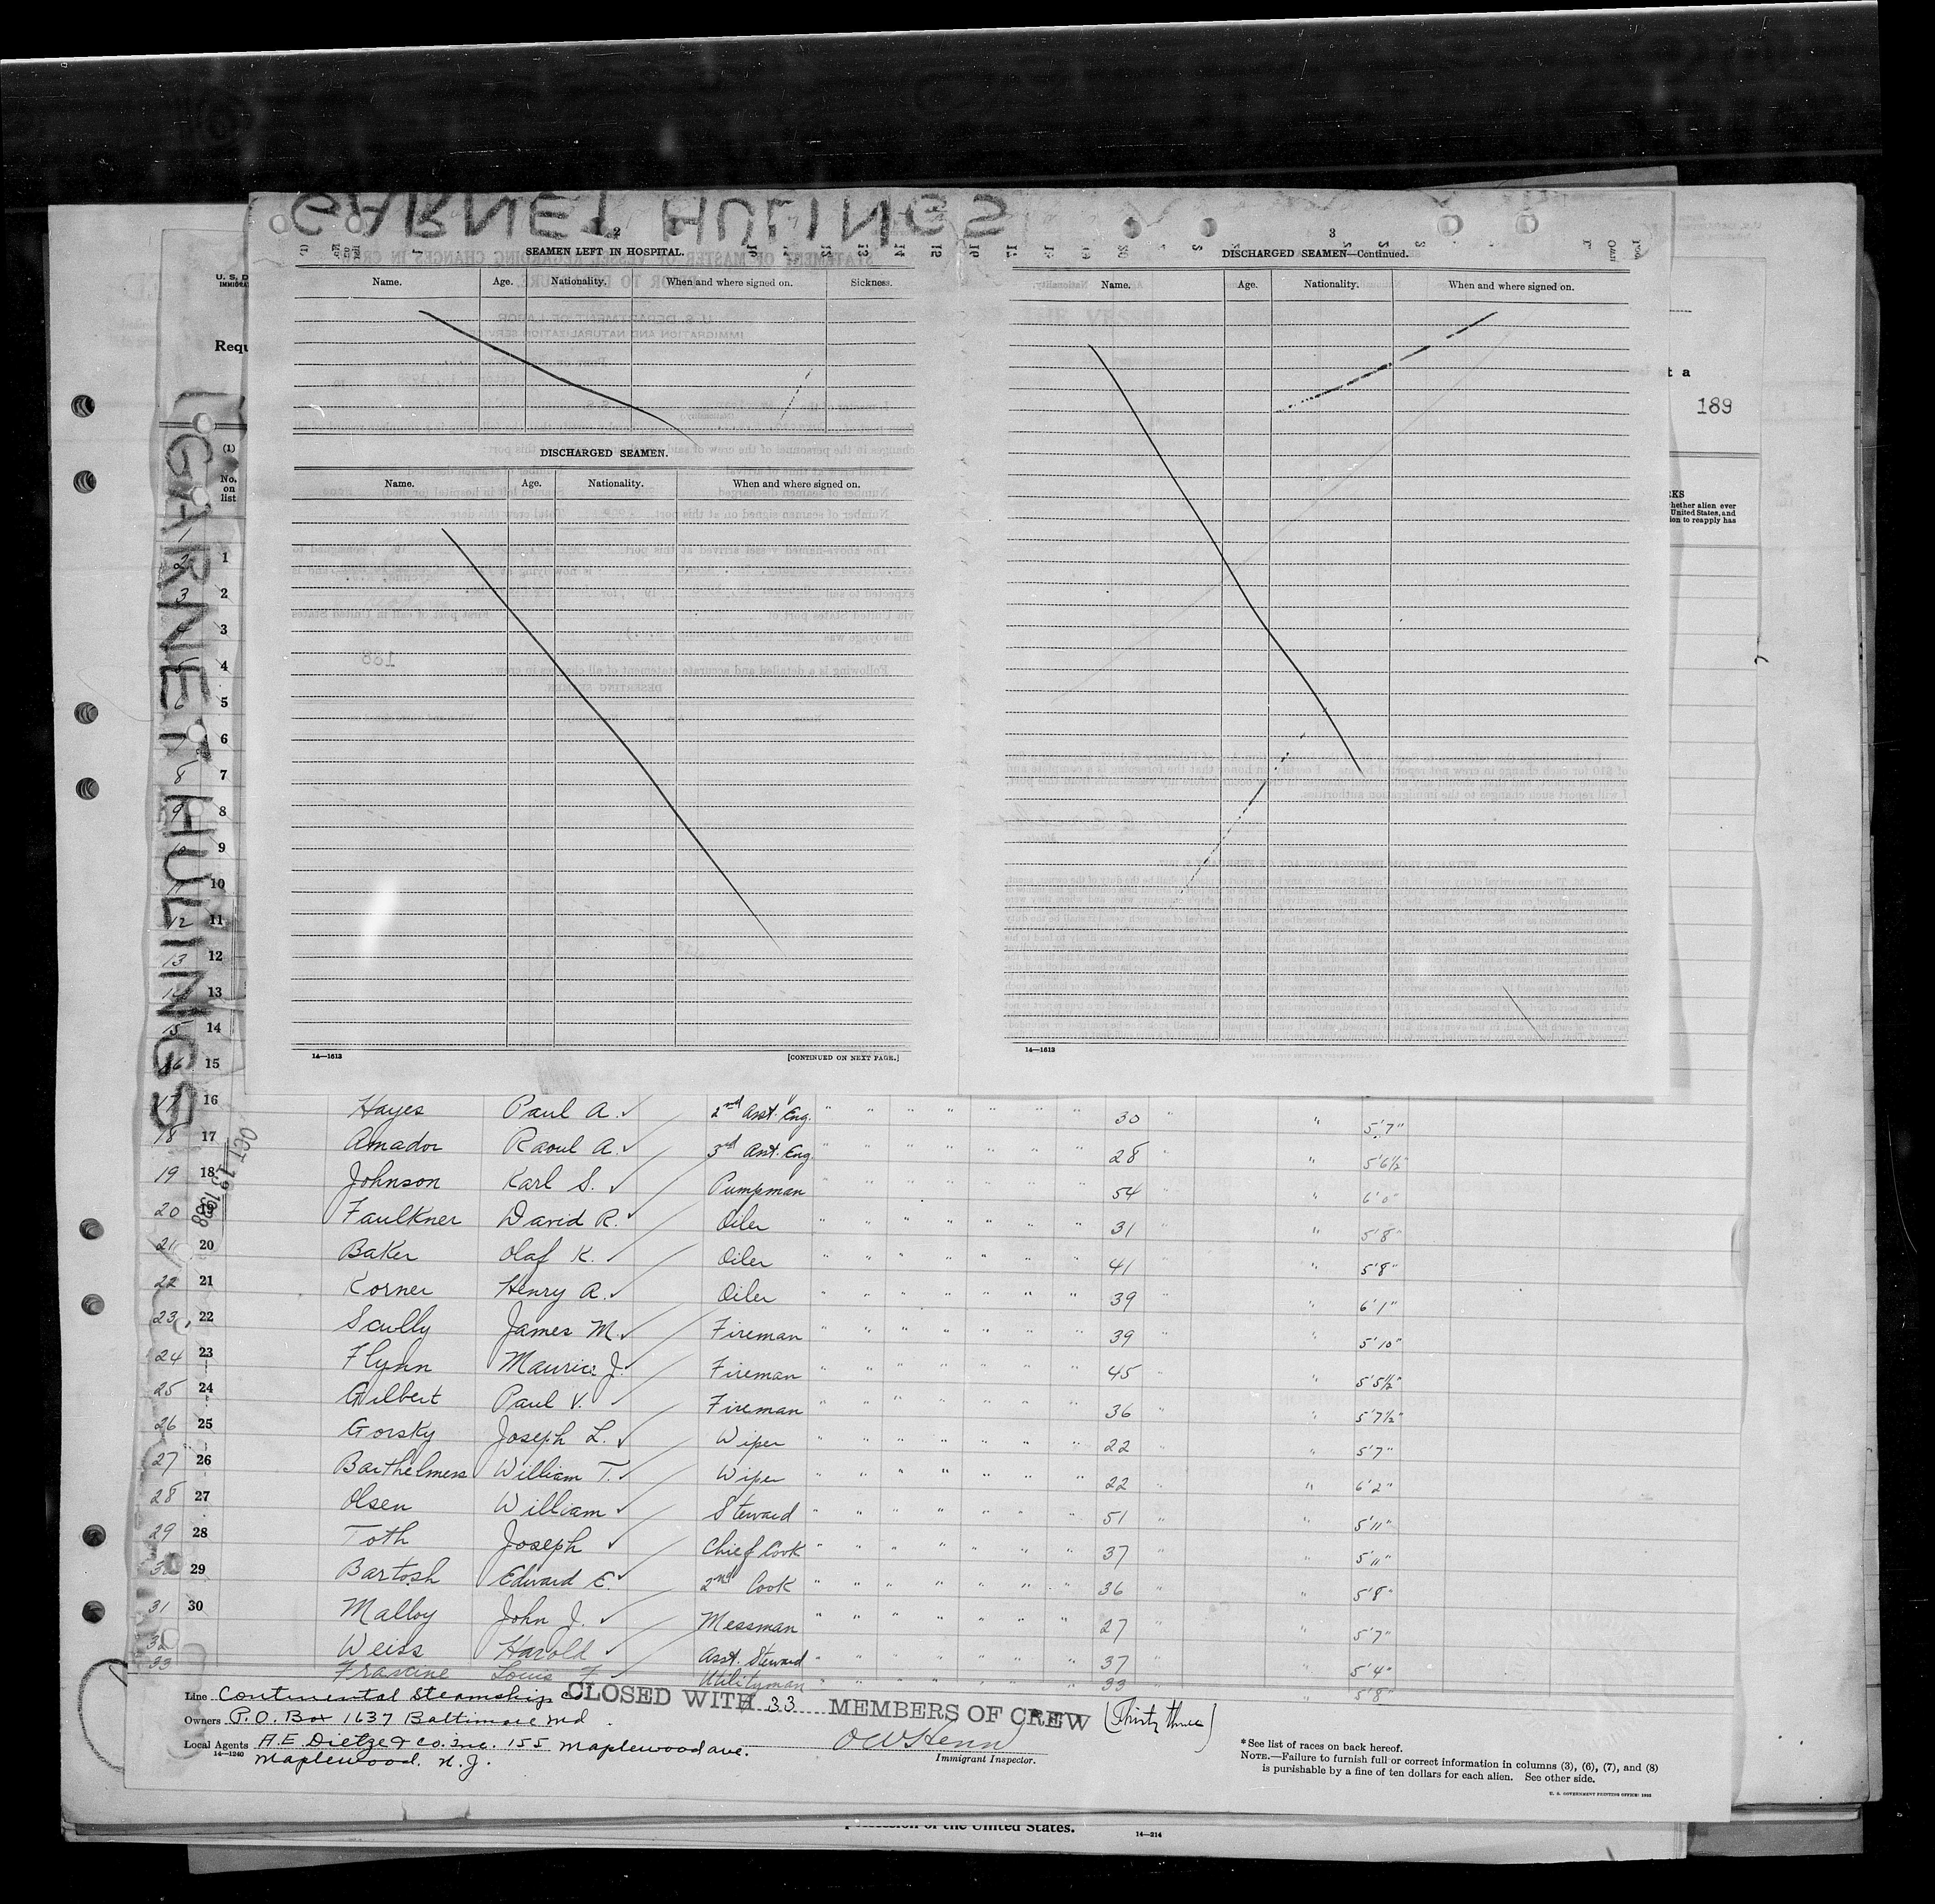 GARNET HULINGS
2
SEAMEN LEFT IN HOSPITAL.
Name. Age. Nationality. When and where signed on. Sickness.
DISCHARGED SEAMEN.
Name. Age. Nationality. When and where signed on.
14—1613 [CONTINUED ON NEXT PAGE.]
3
DISCHARGED SEAMEN—Continued.
Name. Age. Nationality. When and where signed on.
14—1613
U. S. D
IMMIGRA
Requ
t a
189
RKS
hether alien ever
United States, and
ion to reapply has
GARNET HULINGS
(1)
No.
on
list
1
2 1
3 2
3
4
5
6
8 7
9 8
9
10
12 11
13 12
14 13
15 14
16 15
OCT 19 1938
17 16 Hayes Paul A. ✓ 2nd Asst. Eng. " " " " " " " 30 " " 5'7"
18 17 Amador Raoul A. ✓ 3rd Asst. Eng. " " " " " " 28 " " 5'6½"
19 18 Johnson Karl S. ✓ Pumpman " " " " " " " 54 " " 6'0"
20 19 Faulkner David R. ✓ Oiler " " " " " " " 31 " " 5'8"
21 20 Baker Olaf K. ✓ Oiler " " " " " " " 41 " " 5'8"
22 21 Korner Henry A. ✓ Oiler " " " " " " " 39 " " 6'1"
23 22 Scully James M. ✓ Fireman " " " " " " " 39 " " 5'10"
24 23 Flynn Maurice J. ✓ Fireman " " " " " " " 45 " " 5'5½"
25 24 Gilbert Paul V. ✓ Fireman " " " " " " " 36 " " 5'7½"
26 25 Gorsky Joseph L. ✓ Wiper " " " " " " " 22 " " 5'7"
27 26 Barthelmess William T. ✓ Wiper " " " " " " " 22 " " 6'2"
28 27 Olsen William ✓ Steward " " " " " " " 51 " " 5'11"
29 28 Toth Joseph ✓ Chief Cook " " " " " " " 37 " " 5'11"
30 29 Bartosh Edward E. ✓ 2nd Cook " " " " " " " 36 " " 5'8"
31 30 Malloy John J. ✓ Messman " " " " " " " 27 " " 5'7"
32 Weiss Harold ✓ Asst. Steward " " " " " " " 37 " " 5'4"
33 Frascine Louis F. ✓ Utilityman " " " " " " " 33 " " 5'8"
Line Continental Steamship Co.
CLOSED WITH 33 MEMBERS OF CREW (Thirty three)
Owners P.O. Box 1637 Baltimore Md.
Local Agents A.E. Dietze & Co. Inc. 155 Maplewood ave.
14—1240 Maplewood. N.J.
Immigrant Inspector.
* See list of races on back hereof.
NOTE.—Failure to furnish full or correct information in columns (3), (6), (7), and (8)
is punishable by a fine of ten dollars for each alien. See other side.
U. S. GOVERNMENT PRINTING OFFICE
of the United States.
14—214